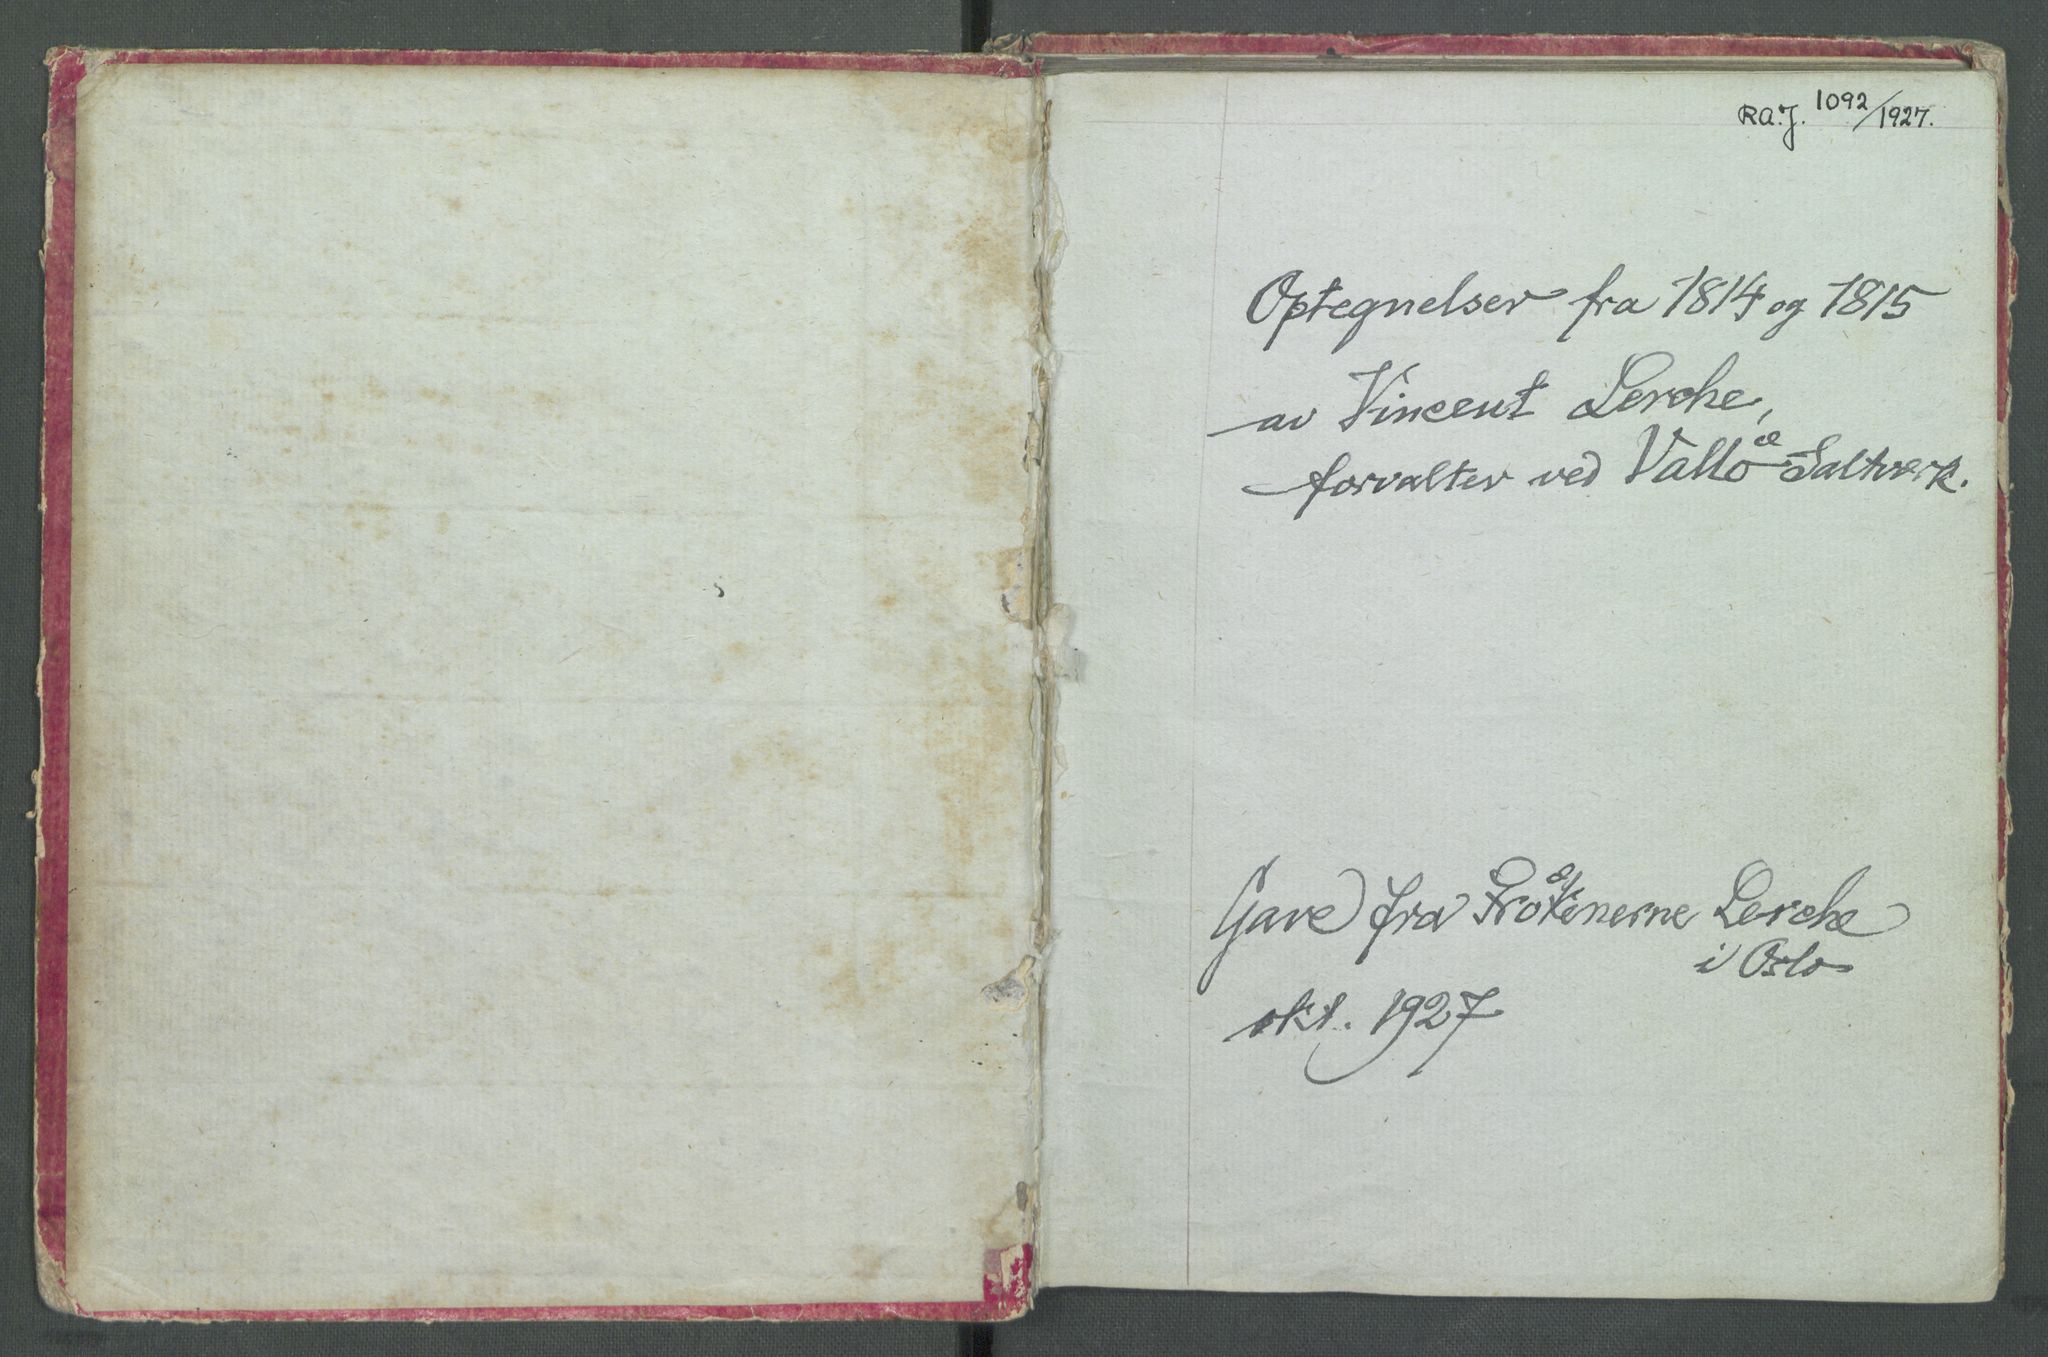 RA.J. 1092/1927.
Optegnelser fra 1814 og 1815
av Vincent Lerche,
forvalter ved Vallø Saltverk.
Gave fra Frøkenerne Lerche
i Oslo
okt. 1927